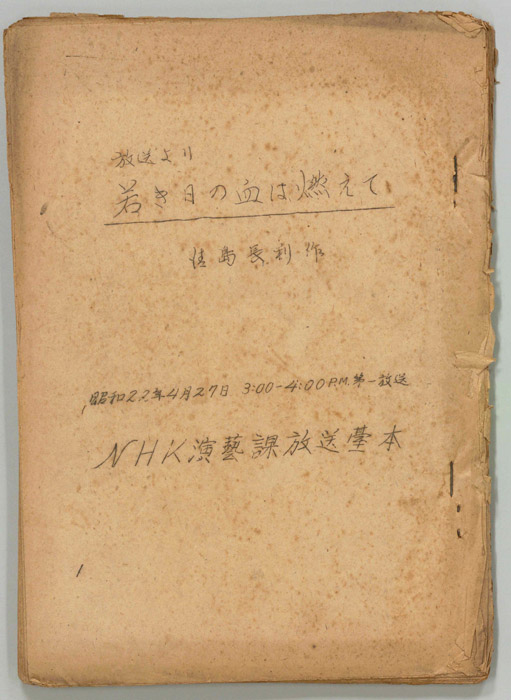 放送より
若き日の血は燃えて
島長利作
昭和22年4月27日 3:00-4:00P.M.第一放送
NHK演藝課放送臺本